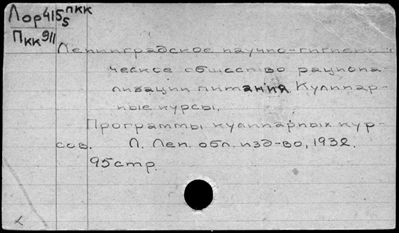 Лор415 пкк
5
Пкк911
Ленинградское научно-гигиени-
ческое общество рациона-
лизации питания. Кулинар-
ные курсы.
Программы кулинарных кур-
сов. Л. Лен. обл. изд-во, 1932.
95 стр.